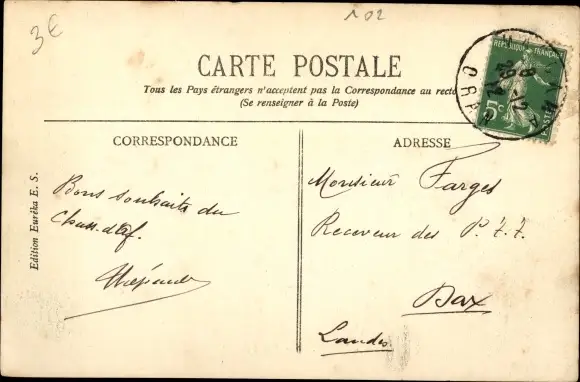 3€
102
CARTE POSTALE
Tous les Pays étrangers n'acceptent pas la Correspondance au recto
(Se renseigner à la Poste)
REPUBLIQUE FRANÇAISE
5c
POSTES
ORAN
CORRESPONDANCE
ADRESSE
Edition Eurêka E. S.
Bons souhaits du
Chass. d'Af.
Monsieur Farges
Receveur des P. T. T.
Dax
Landes